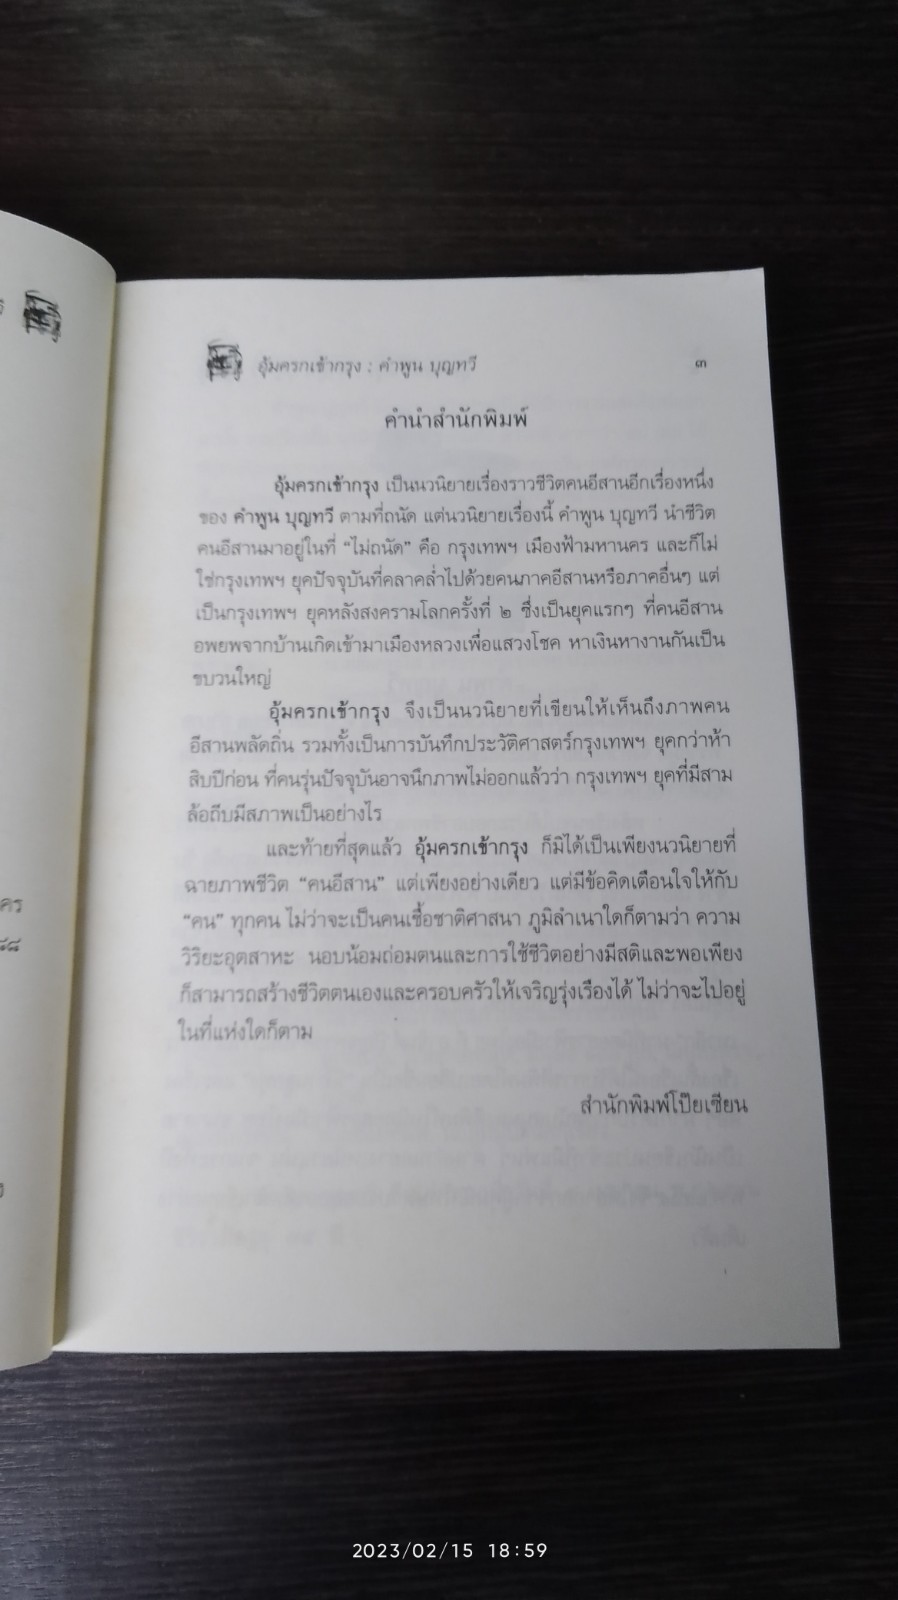 อุ้มครกเข้ากรุง : คำพูน บุญทวี ๓
คำนำสำนักพิมพ์
อุ้มครกเข้ากรุง เป็นนวนิยายเรื่องราวชีวิตคนอีสานอีกเรื่องหนึ่ง
ของ คำพูน บุญทวี ตามที่ถนัด แต่นวนิยายเรื่องนี้ คำพูน บุญทวี นำชีวิต
คนอีสานมาอยู่ในที่ “ไม่ถนัด” คือ กรุงเทพฯ เมืองฟ้ามหานคร และก็ไม่
ใช่กรุงเทพฯ ยุคปัจจุบันที่คลาคล่ำไปด้วยคนภาคอีสานหรือภาคอื่นๆ แต่
เป็นกรุงเทพฯ ยุคหลังสงครามโลกครั้งที่ ๒ ซึ่งเป็นยุคแรกๆ ที่คนอีสาน
อพยพจากบ้านเกิดเข้ามาเมืองหลวงเพื่อแสวงโชค หาเงินหางานกันเป็น
ขบวนใหญ่
อุ้มครกเข้ากรุง จึงเป็นนวนิยายที่เขียนให้เห็นถึงภาพคน
อีสานพลัดถิ่น รวมทั้งเป็นการบันทึกประวัติศาสตร์กรุงเทพฯ ยุคกว่าห้า
สิบปีก่อน ที่คนรุ่นปัจจุบันอาจนึกภาพไม่ออกแล้วว่า กรุงเทพฯ ยุคที่มีสาม
ล้อถีบมีสภาพเป็นอย่างไร
และท้ายที่สุดแล้ว อุ้มครกเข้ากรุง ก็มิได้เป็นเพียงนวนิยายที่
ฉายภาพชีวิต “คนอีสาน” แต่เพียงอย่างเดียว แต่มีข้อคิดเตือนใจให้กับ
“คน” ทุกคน ไม่ว่าจะเป็นคนเชื้อชาติศาสนา ภูมิลำเนาใดก็ตามว่า ความ
วิริยะอุตสาหะ นอบน้อมถ่อมตนและการใช้ชีวิตอย่างมีสติและพอเพียง
ก็สามารถสร้างชีวิตตนเองและครอบครัวให้เจริญรุ่งเรืองได้ ไม่ว่าจะไปอยู่
ในที่แห่งใดก็ตาม
สำนักพิมพ์โป๊ยเซียน
2023/02/15 18:59